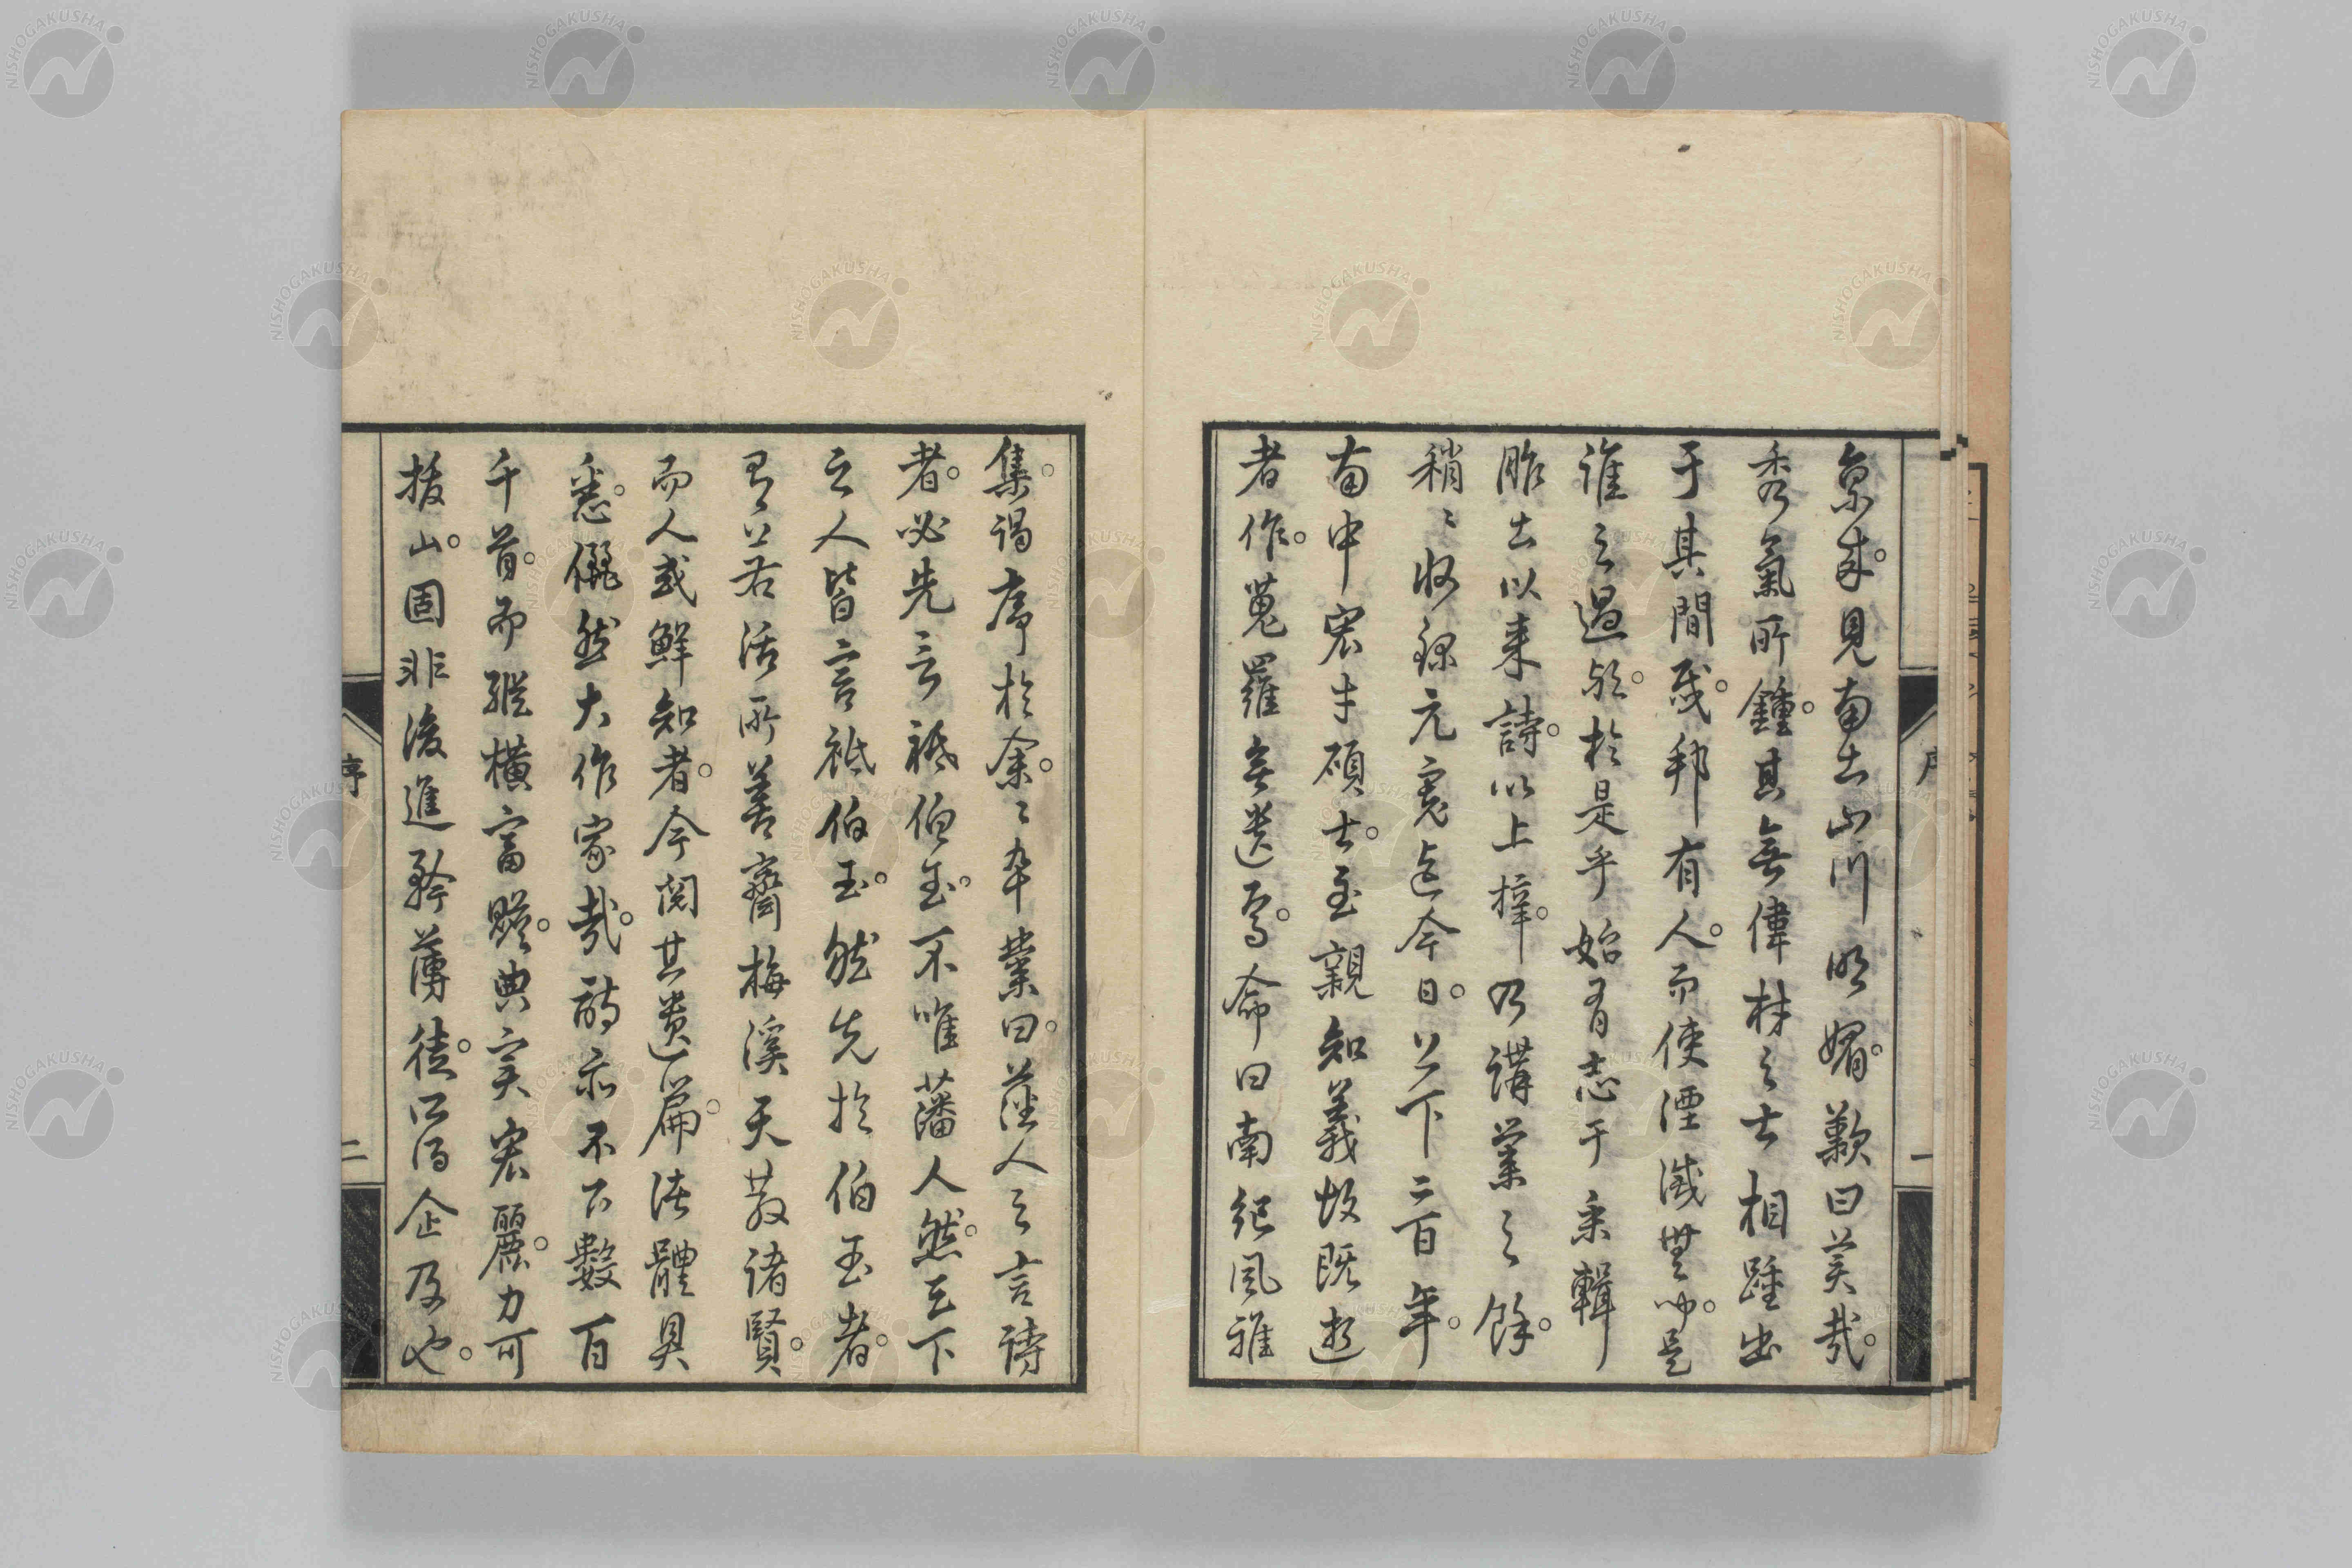 京來。見南土山川明媚。歎曰美哉。
秀氣所鍾。其無偉材之士相踵出
于其間哉。邦有人。而使湮滅無聞。是
誰之過歟。於是乎始有志于采輯
胙土以來詩。以上梓。乃講業之餘。
稍〻收錄元寬迄今日。上下二百年。
南中宏才碩士。至親知義故既逝
者作。蒐羅無遺焉。命曰南紀風雅
集。謁序於余。〻卒業曰。藩人之言詩
者。必先言祗伯玉。不唯藩人然。天下
之人皆言祗伯玉。然先於伯玉者。
有若活所善齋梅溪天散諸賢。
而人或鮮知者。今閱其遺篇。諸體具
悉。儼然大作家哉。詩亦不下數百
千首。而縱橫富贍。典實宏麗。力可
拔山。固非後進輇薄徒。所得企及也。
序
一
序
二
NISHOGAKUSHA